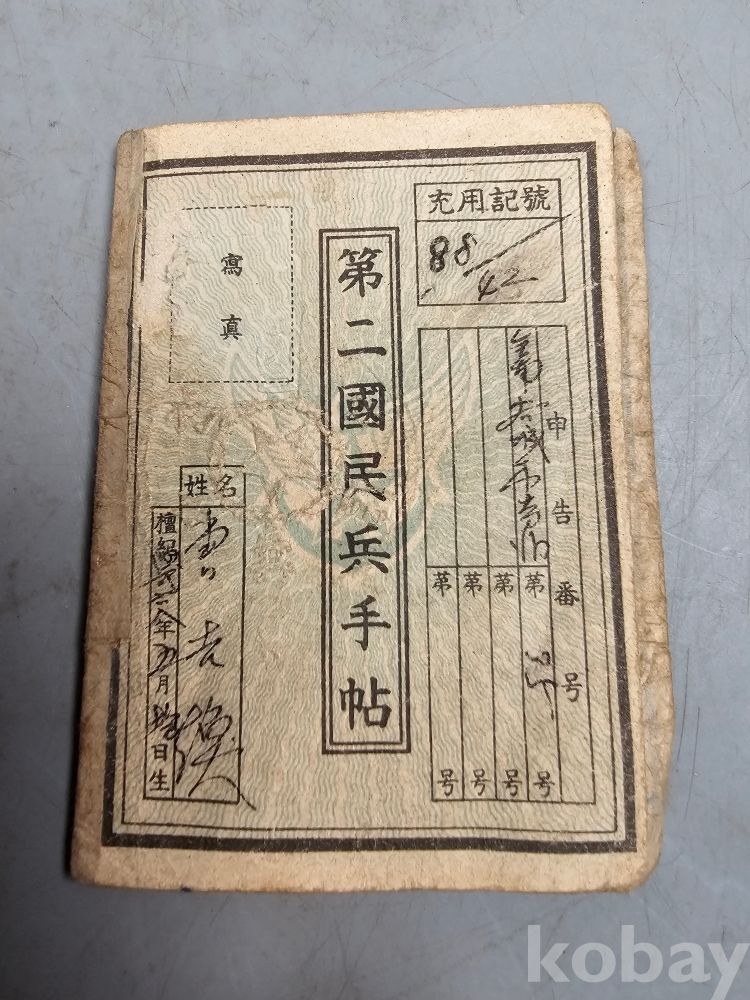 充用記號
88/42
申告番号
第 25 号
第 号
第 号
第 号
第二國民兵手帖
寫真
姓名
吉
檀紀 年 五月 日生
kobay